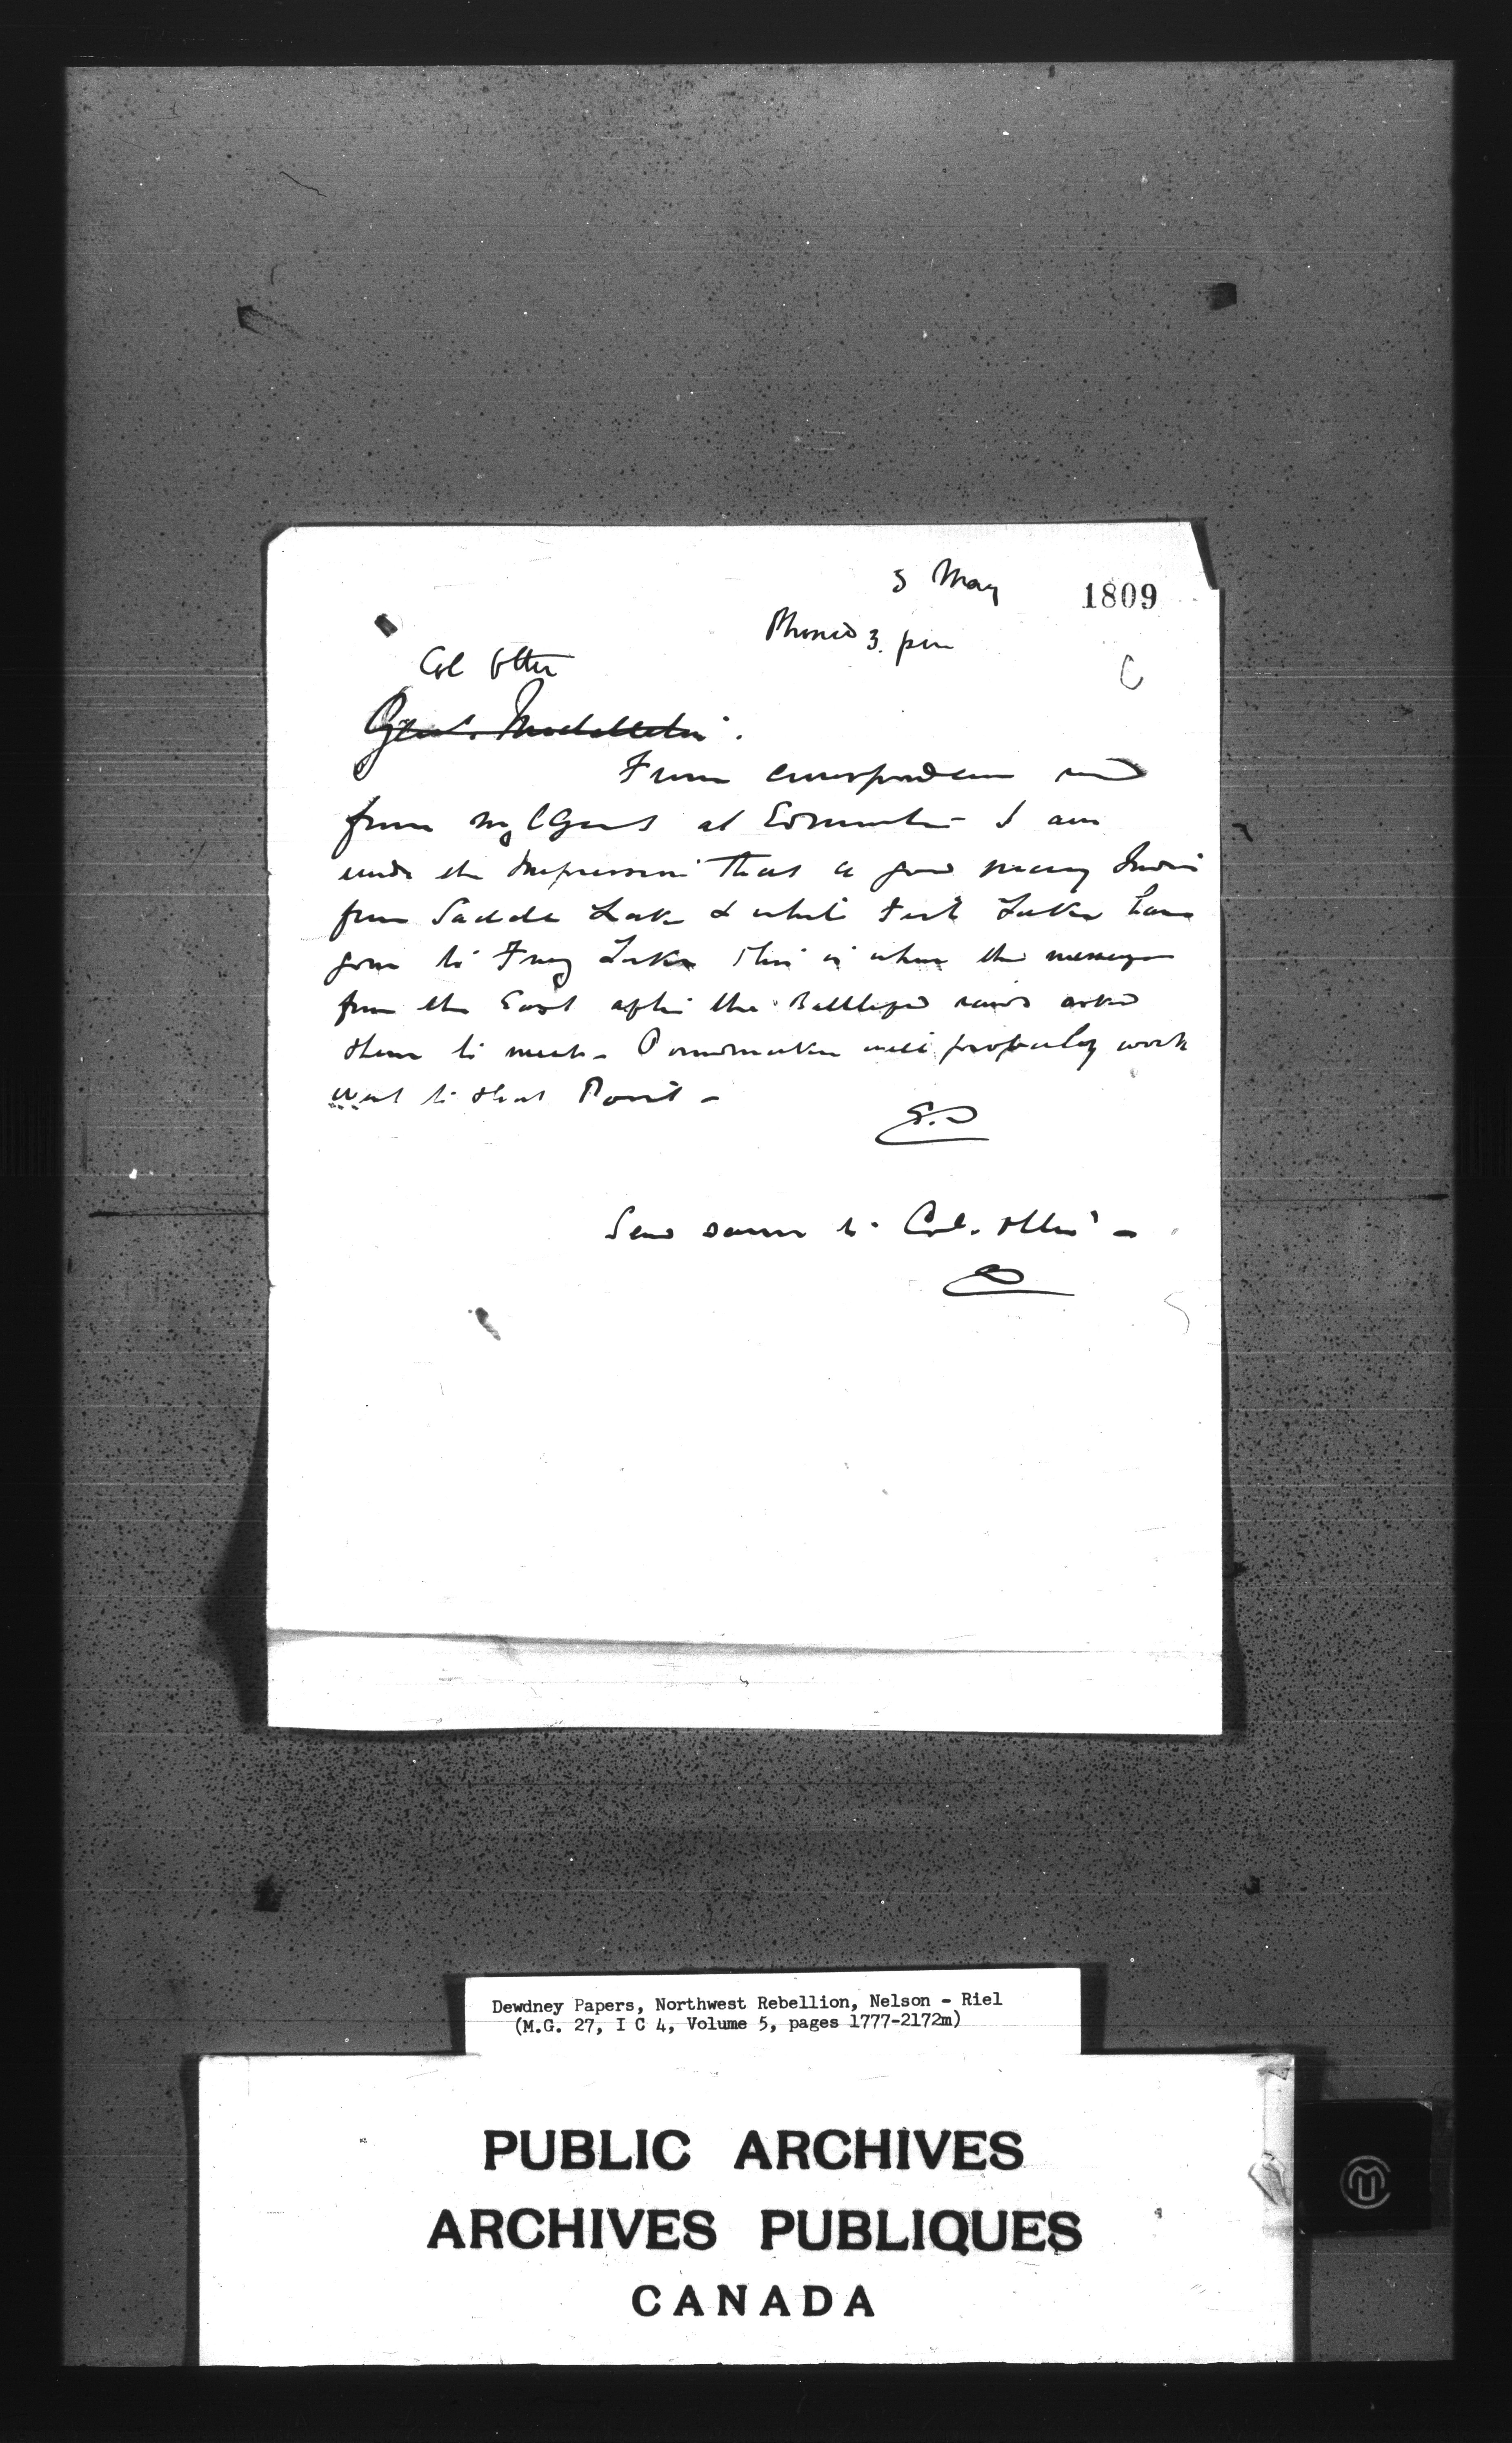 5 May
1809
Phoned 3. pm
C
Col Otter
Genl. Middleton.
From correspondence recd
from my Agents at Edmonton I am
under the Impression that a good many Indians
from Saddle Lake & White Fish Lake have
gone to Frog Lake This is where the messenger
from the East after the Battleford raid asked
them to meet - Poundmaker will probably work
west to that Point -
E.D
Send same to Col. Otter -
ED
Dewdney Papers, Northwest Rebellion, Nelson - Riel
(M.G. 27, I C 4, Volume 5, pages 1777-2172m)
PUBLIC ARCHIVES
ARCHIVES PUBLIQUES
CANADA